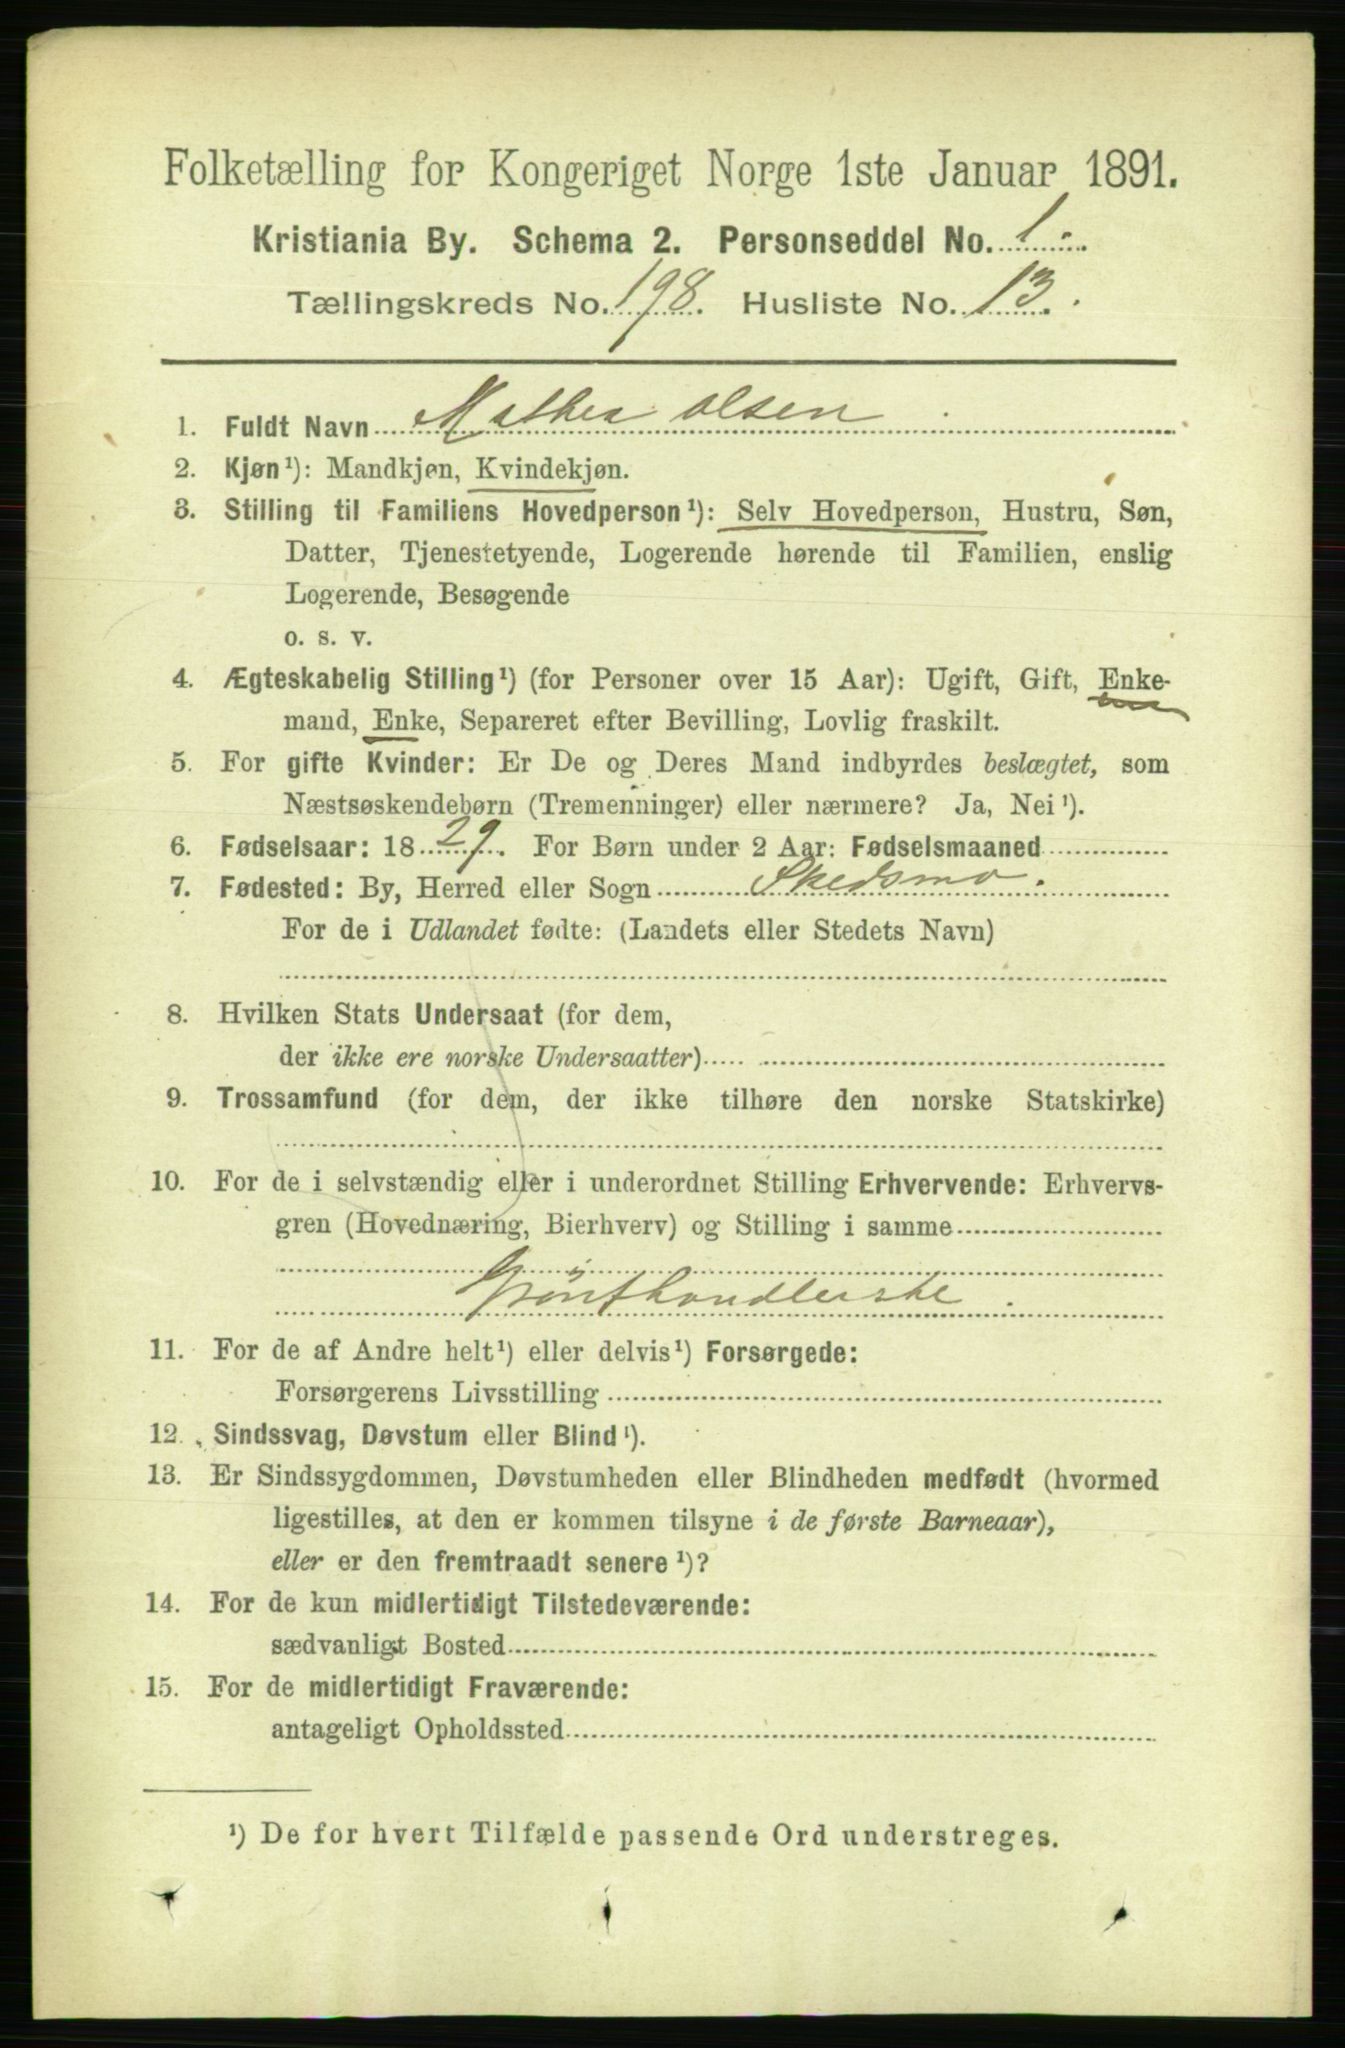 Folketælling for Kongeriget Norge 1ste Januar 1891.
Kristiania By. Schema 2. Personseddel No. 1.
Tællingskreds No. 198. Husliste No. 13.
1. Fuldt Navn Mathea Olsen
2. Kjøn¹): Mandkjøn, Kvindekjøn.
3. Stilling til Familiens Hovedperson¹): Selv Hovedperson, Hustru, Søn,
Datter, Tjenestetyende, Logerende hørende til Familien, enslig
Logerende, Besøgende
o. s. v.
4. Ægteskabelig Stilling¹) (for Personer over 15 Aar): Ugift, Gift, Enke-
mand, Enke, Separeret efter Bevilling, Lovlig fraskilt.
5. For gifte Kvinder: Er De og Deres Mand indbyrdes beslægtet, som
Næstsøskendebørn (Tremenninger) eller nærmere? Ja, Nei¹).
6. Fødselsaar: 1829. For Børn under 2 Aar: Fødselsmaaned
7. Fødested: By, Herred eller Sogn Skedsmo.
For de i Udlandet fødte: (Landets eller Stedets Navn)
8. Hvilken Stats Undersaat (for dem,
der ikke ere norske Undersaatter)
9. Trossamfund (for dem, der ikke tilhøre den norske Statskirke)
10. For de i selvstændig eller i underordnet Stilling Erhvervende: Erhvervs-
gren (Hovednæring, Bierhverv) og Stilling i samme
Grønthandlerske.
11. For de af Andre helt¹) eller delvis¹) Forsørgede:
Forsørgerens Livsstilling
12. Sindssvag, Døvstum eller Blind¹).
13. Er Sindssygdommen, Døvstumheden eller Blindheden medfødt (hvormed
ligestilles, at den er kommen tilsyne i de første Barneaar),
eller er den fremtraadt senere¹)?
14. For de kun midlertidigt Tilstedeværende:
sædvanligt Bosted
15. For de midlertidigt Fraværende:
antageligt Opholdssted
¹) De for hvert Tilfælde passende Ord understreges.